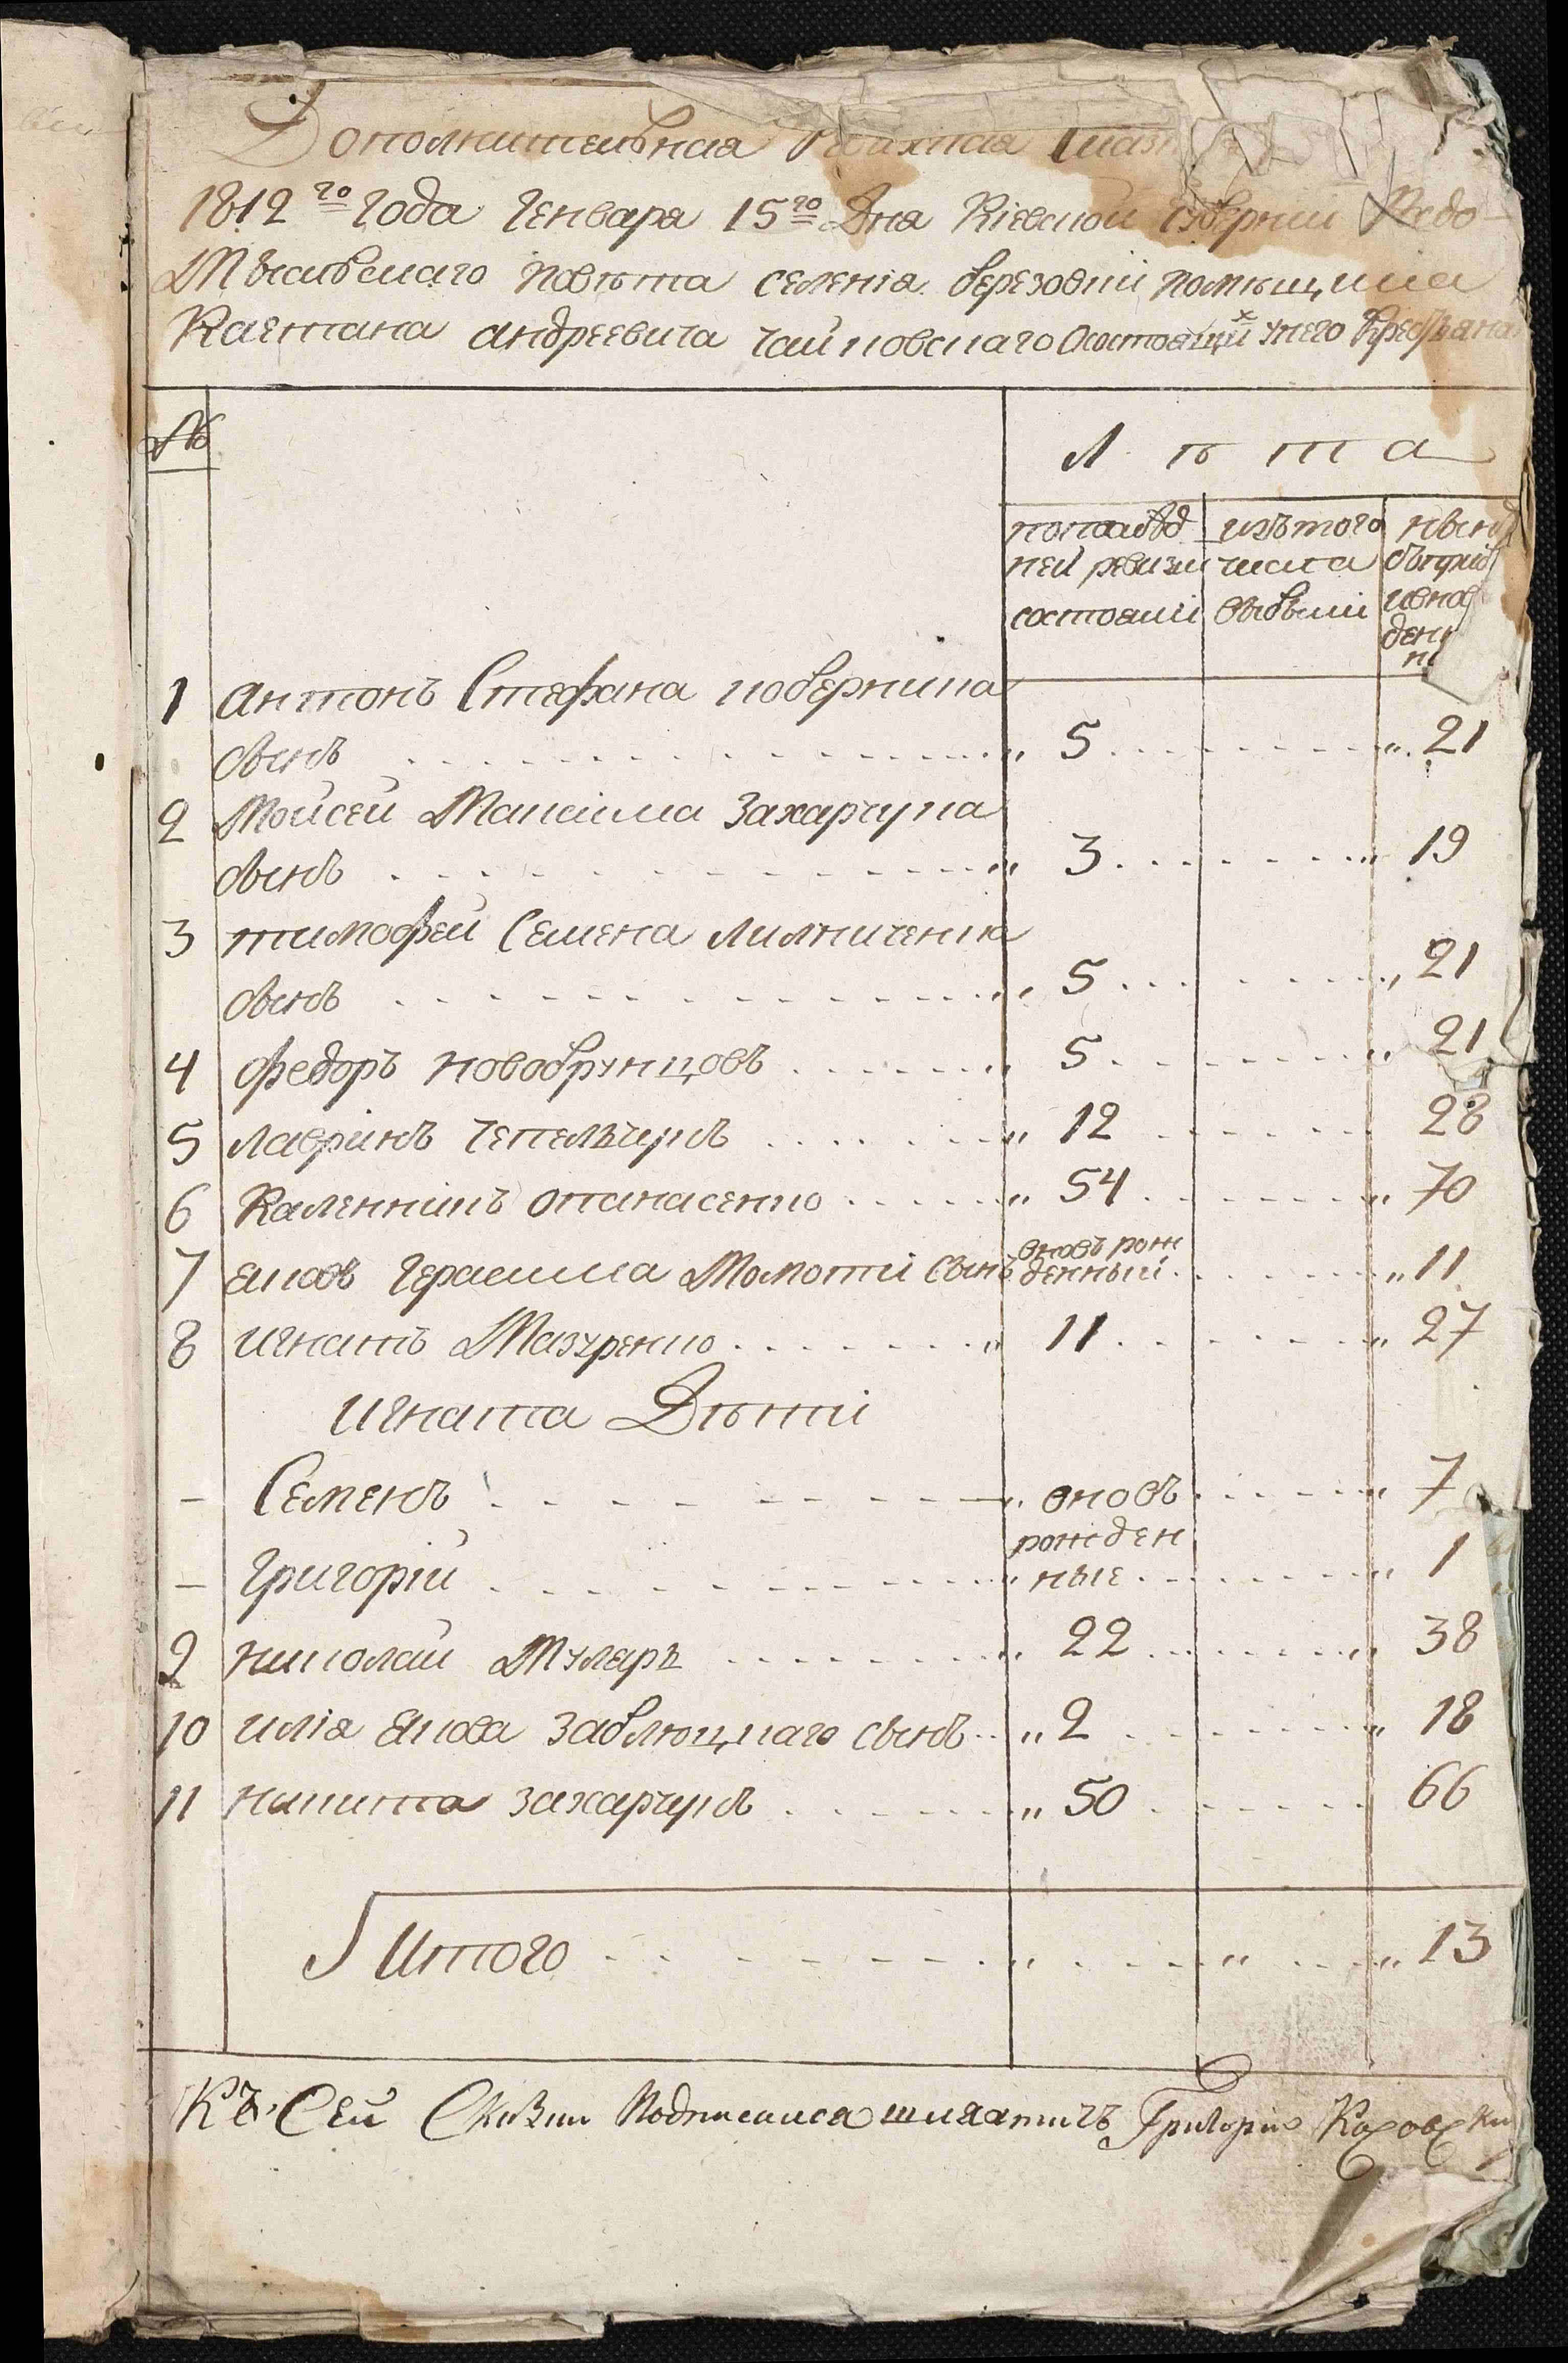 Дополнительная Ревижская Сказ
1812го Года Генваря 15го Дня Кіевской Губерніи Радо-
Мысльскаго Повѣта селенія березовки помѣщика
Каетана андреевича Чайковскаго Осостоящихъ унего Крестьянах
№
Л ѣ т а
попослѣд
ней ревизи
состояли
изътого
числа
выбыли
нынѣ
съприб
ивнов
ден
ны
1 антонъ Стефана коверника
сынъ 5 21
2 Мойсей Максима Захарчука
сынъ 3 19
3 тимофей Семена Лилниченка
сынъ 5 21
4 федоръ новобрунцовъ 5 21
5 лавринъ Чепельчукъ 12 28
6 Каленникъ опанасенко 54 70
7 яковъ Герасима Момоти Сынъ вновь рож
денный 11
8 игнатъ Мазуренко 11 27
игната Дѣти
– Семенъ вновь 7
рожден
– Григорій ные 1
9 николай Муляръ 22 38
10 илія якова заблоцкаго сынъ 2 18
11 никита захарчукъ 50 66
Итого 13
Къ Сей Сказки Подписался шляхтичъ Григорій Каховски